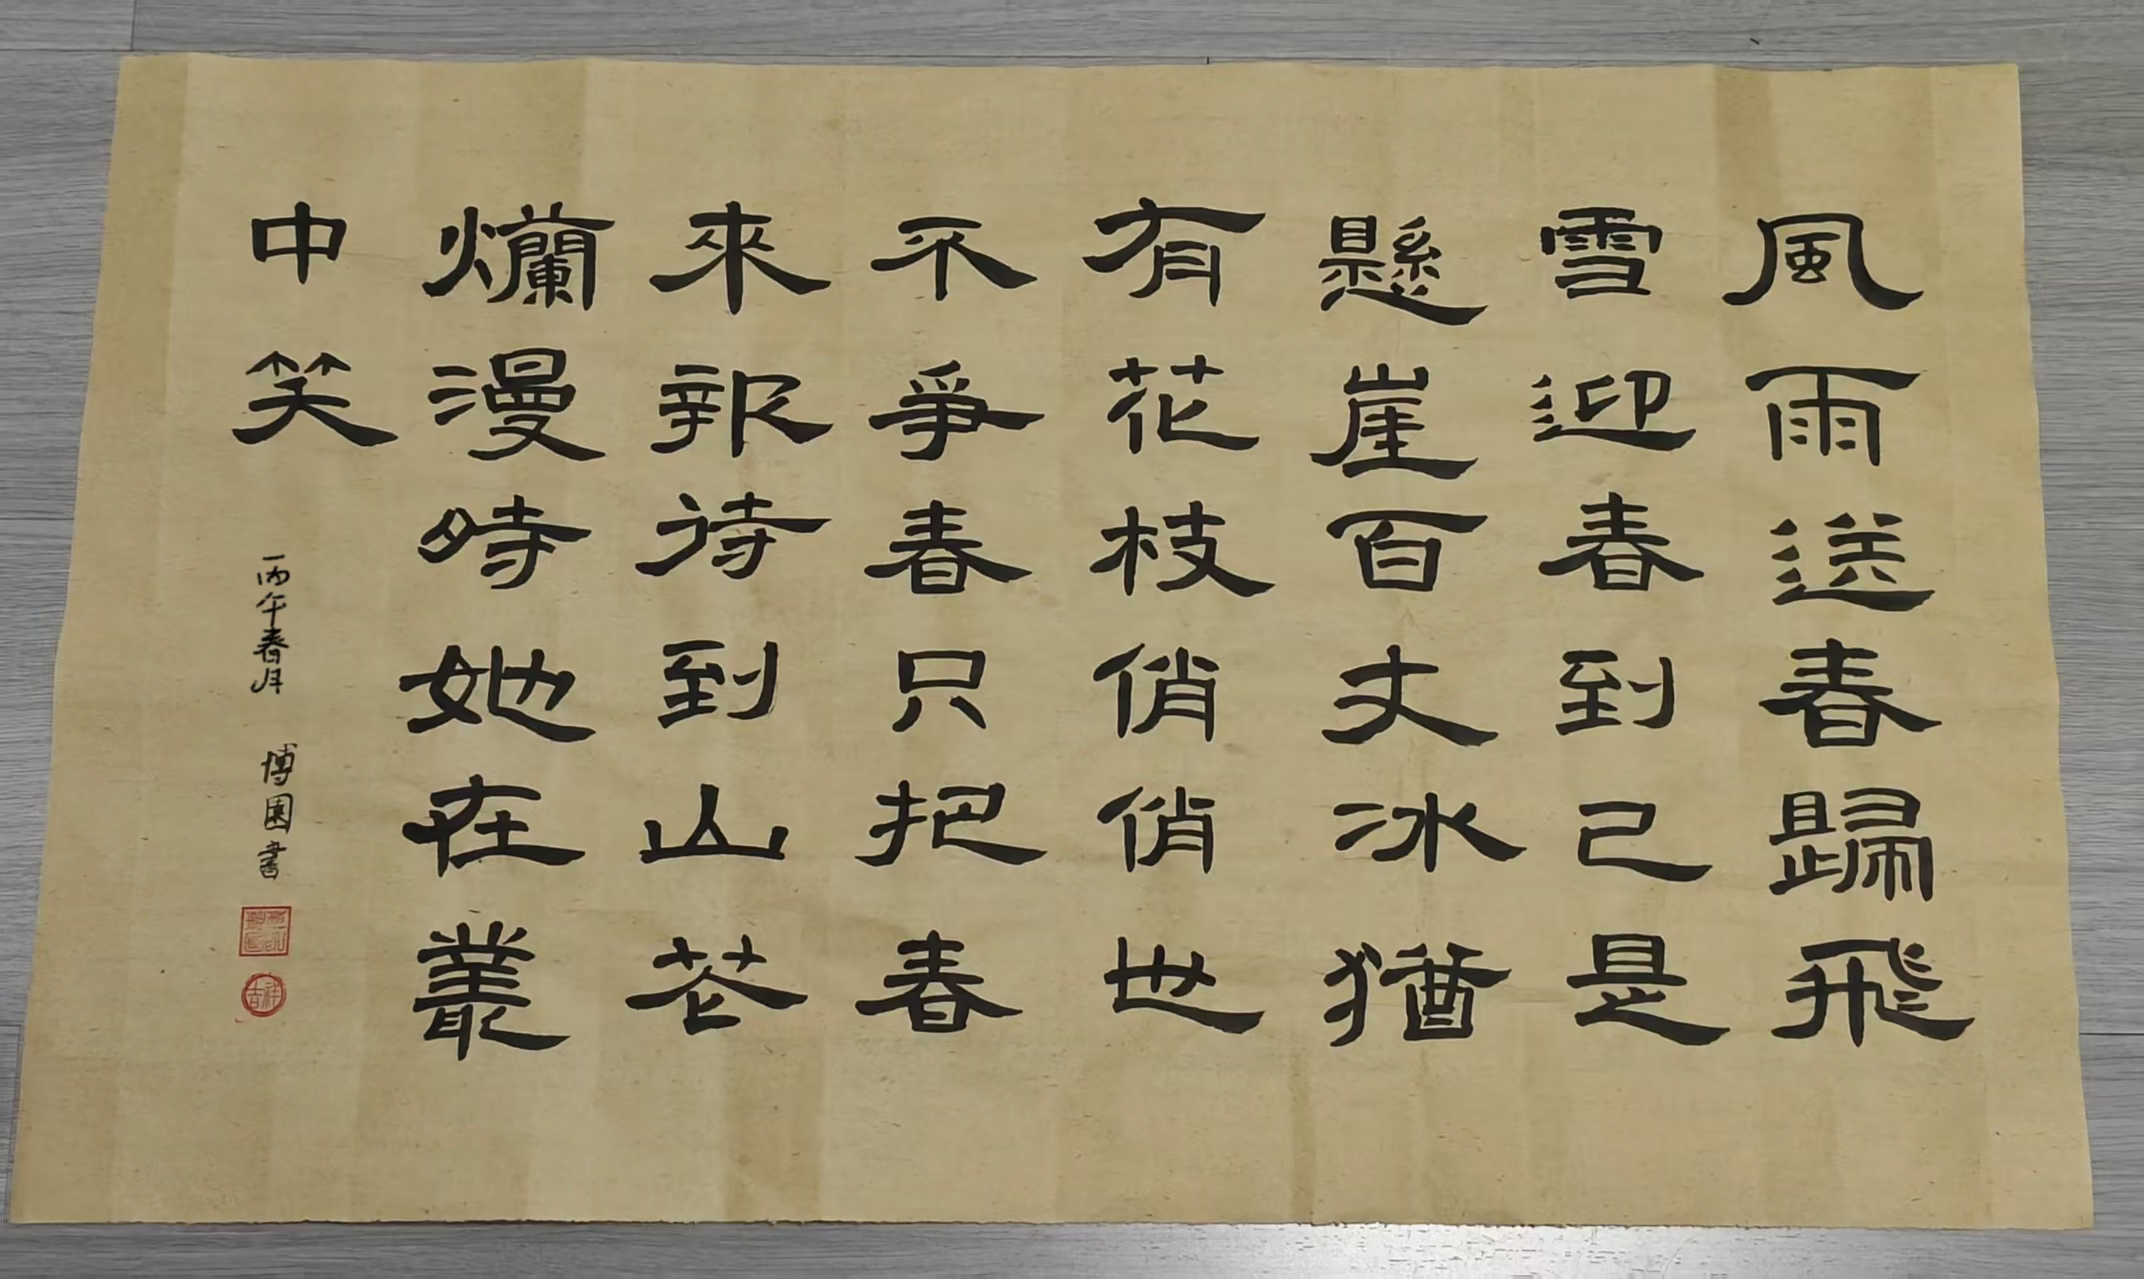 風雨送春歸飛
雪迎春到已是
懸崖百丈冰猶
有花枝俏俏也
不爭春只把春
來報待到山花
爛漫時她在叢
中笑
丙午春月 博園書
吉祥